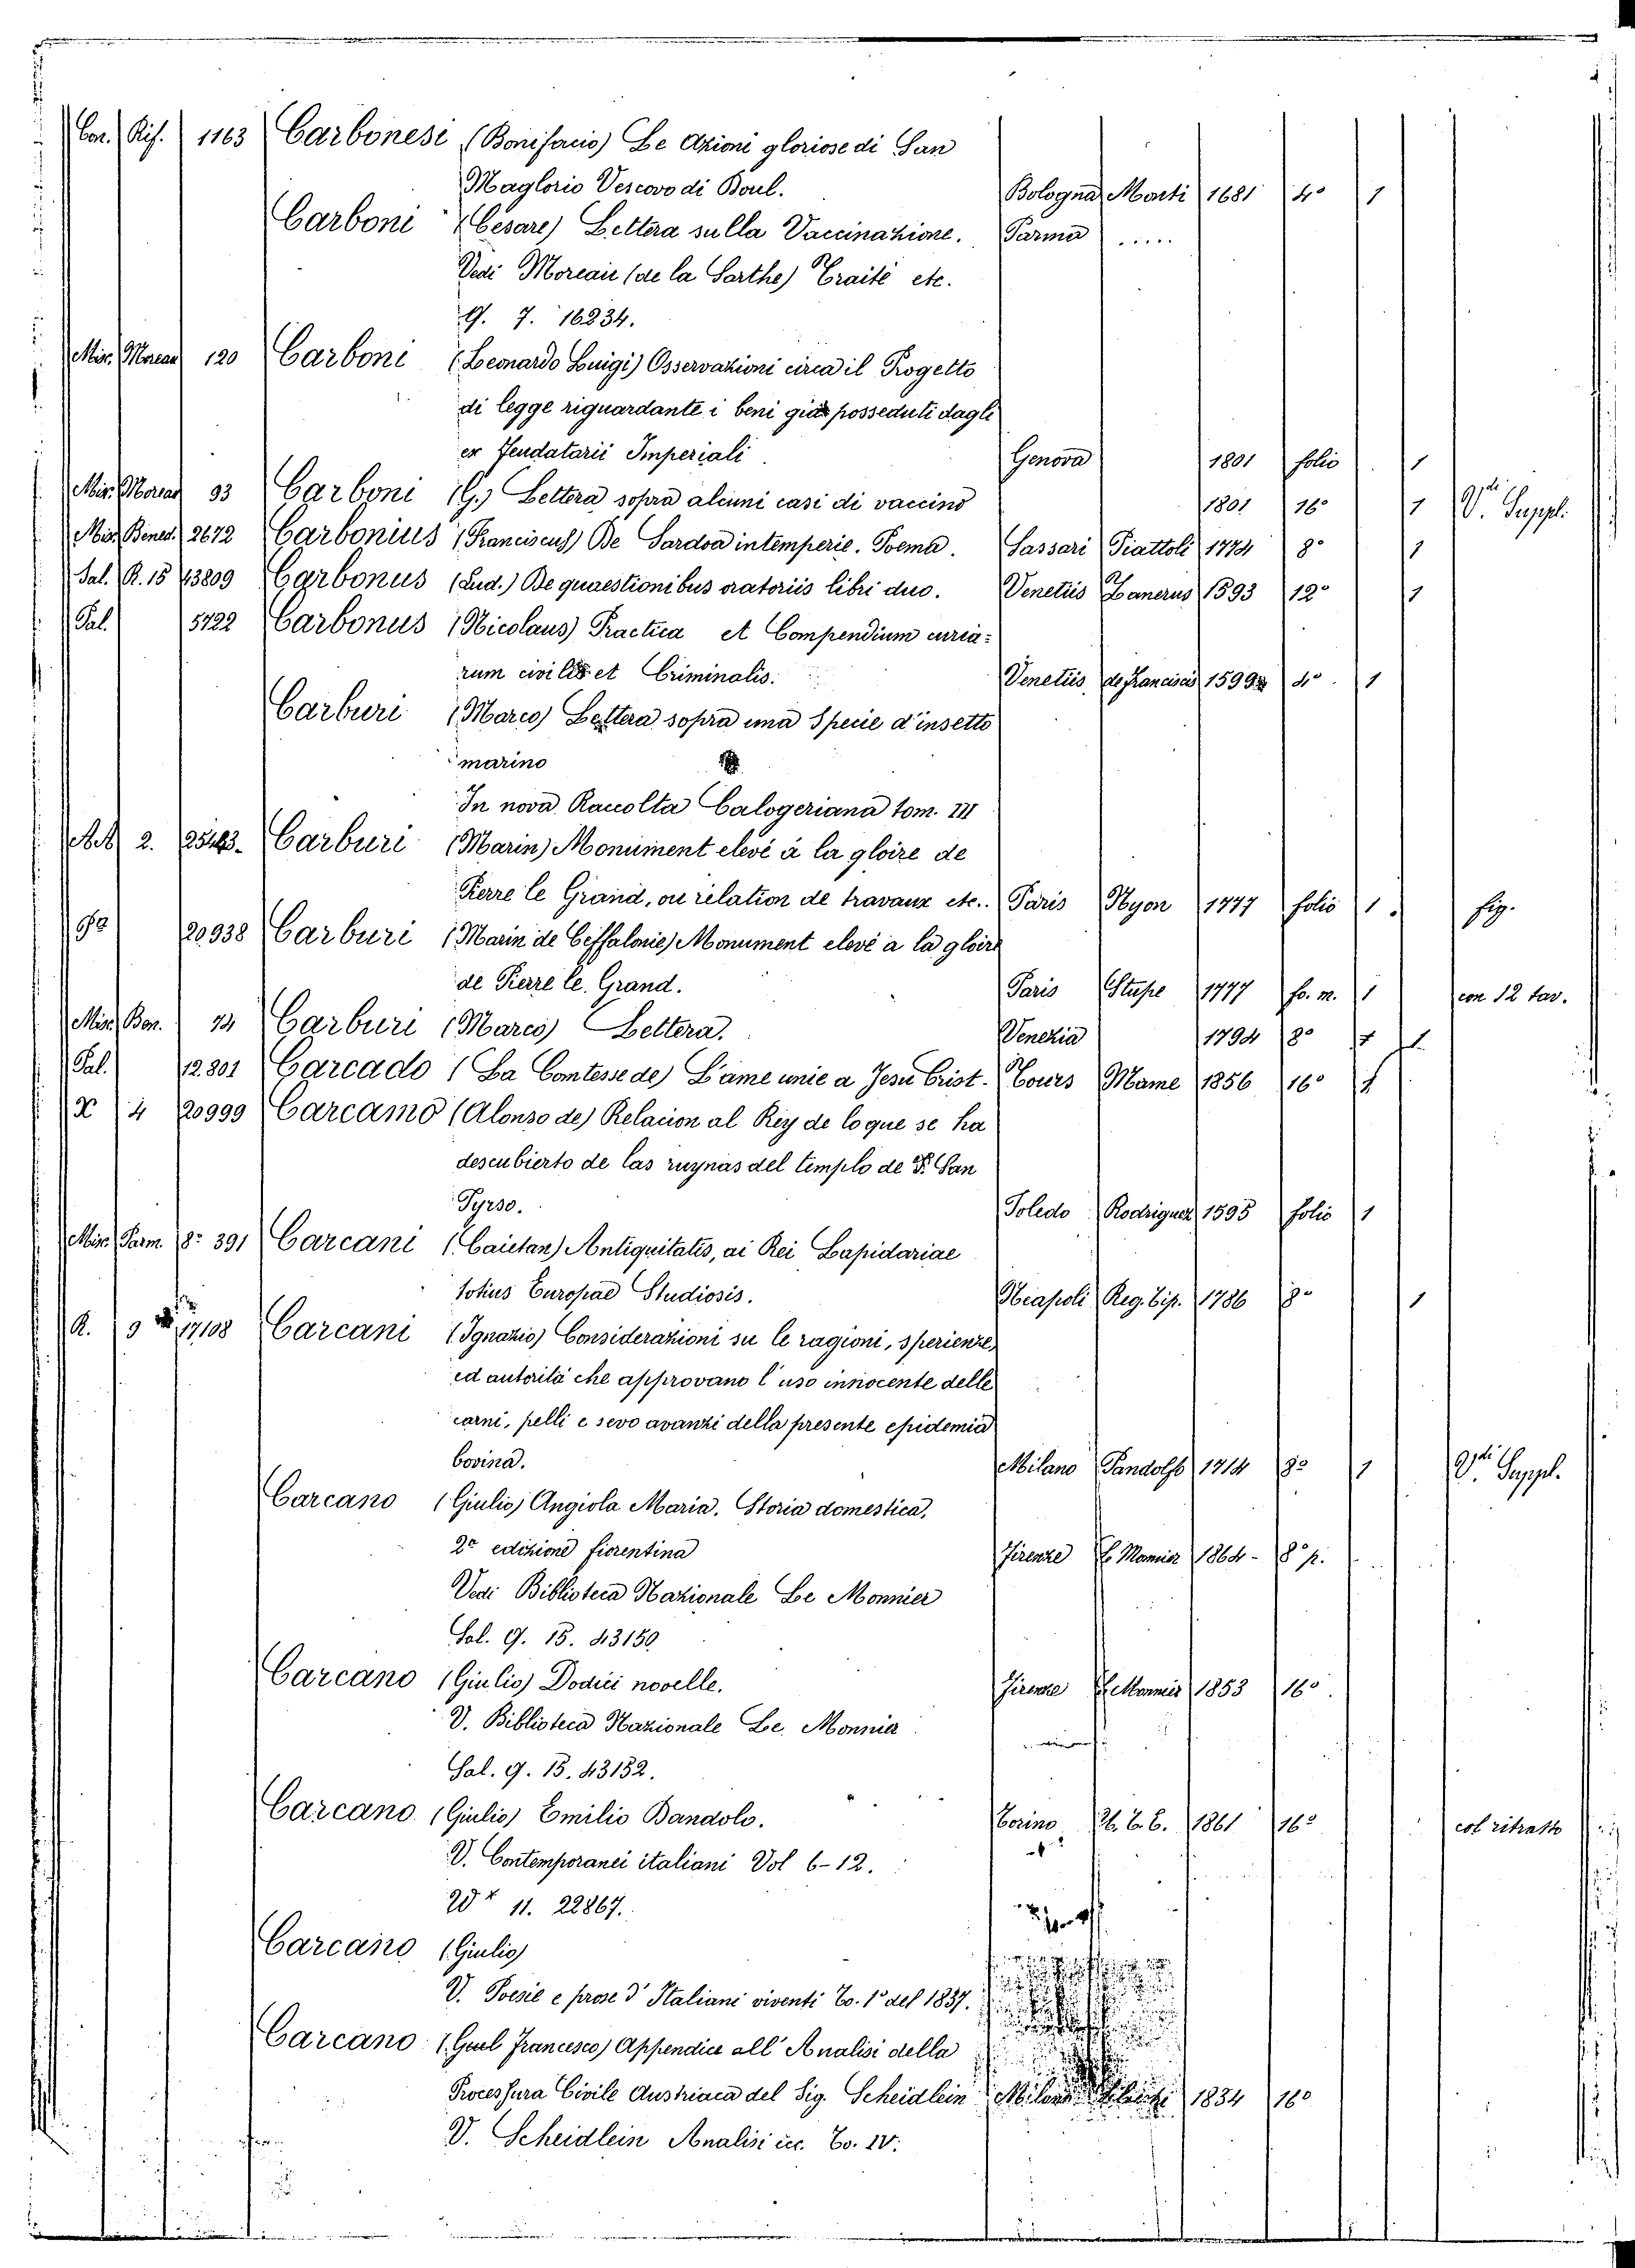 Con. Rif. 1163 Carbonesi (Bonifacio) Le Azioni gloriose di San
Maglorio Vescovo di Boul. Bologna Monti 1681 4° 1
Carboni (Cesare) Lettera sulla Vaccinazione. Parma .....
Vedi Moreau (de la Sarthe) Traité etc.
G. 7. 16234.
Mis. Moreau 120 Carboni (Leonardo Luigi) Osservazioni circa il Progetto
di legge riguardante i beni già posseduti dagli
ex Feudatarii Imperiali Genova 1801 folio 1
Mis. Moreau 93 Carboni (G.) Lettera sopra alcuni casi di vaccino 1801 16° 1 Vdi Suppl.
Mis. Bened. 2672 Carbonius (Franciscus) De Sardoa intemperie. Poema. Sassari Piattoli 1774 8° 1
Sal. R. 15 43809 Carbonus (Lud.) De quaestionibus oratoriis libri duo. Venetiis Zanerus 1593 12° 1
Pal. 5722 Carbonus (Nicolaus) Practica et Compendium curia:
rum civilis et Criminalis. Venetiis de Franciscis 1599 4° 1
Carburi (Marco) Lettera sopra una Specie d'insetto
marino
In nova Raccolta Calogeriana tom. III
2. Carburi (Marin) Monument elevé à la gloire de
Pierre le Grand, ou relation de travaux etc.. Paris Nyon 1777 folio 1. fig.
20938 Carburi (Marin de Ceffalonie) Monument elevé a la gloire
de Pierre le Grand. Paris Stupe 1777 fo. m. 1 con 12 tav.
Misc. Bon. 74 Carburi (Marco) Lettera. Venezia 1794 8°
Pal. 12.801 Carcado (La Contesse de) L'ame unie a Jesu Crist. Tours Mame 1856 16° 1
X 4 20999 Carcamo (Alonso de) Relacion al Rey de lo que se ha
descubierto de las ruynas del templo de S. San
Tyrso. Toledo Rodriguez 1595 folio 1
Misc. Parm. 8° 391 Carcani (Caietan) Antiquitatis, ac Rei Lapidariae
totius Europae Studiosis. Neapoli Reg. Tip. 1786 8° 1
R. 9 17108 Carcani (Ignazio) Considerazioni su le ragioni, sperienze,
ed autorità che approvano l'uso innocente delle
carni, pelli e sevo avanzi della presente epidemia
bovina. Milano Pandolfo 1714 8° 1 Vdi Suppl.
Carcano (Giulio) Angiola Maria. Storia domestica,
2a edizione fiorentina Firenze Le Monnier 1864 - 8° p.
Vedi Biblioteca Nazionale Le Monnier
Sal. G. 15. 43150
Carcano (Giulio) Dodici novelle. Firenze Le Monnier 1853 16°.
V. Biblioteca Nazionale Le Monnier
Sal. G. 15. 43152.
Carcano (Giulio) Emilio Dandolo. Torino U. T. E. 1861 16° col ritratto
V. Contemporanei italiani Vol 6-12.
11. 22867.
Carcano (Giulio)
V. Poesie e prose d'Italiani viventi To. 1° del 1837.
Carcano (Francesco) Appendice all'Analisi della
Processura Civile Austriaca del Sig. Scheidlein Milano 1834 16°
V. Scheidlein Analisi ec. To. IV.